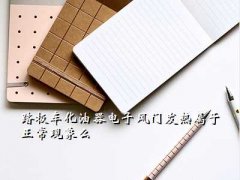 踏板车化油器电子风门发热属于
正常现象么